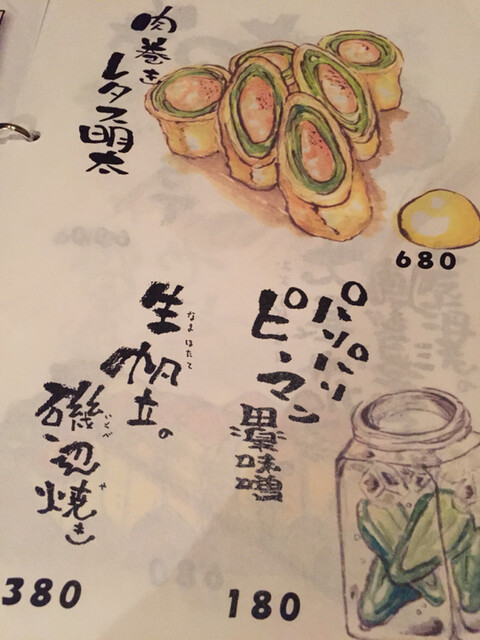 肉巻き
レタス明太
680
パリパリ
ピーマン
田楽味噌
180
生帆立。
なまほたて
磯辺焼き
いそべ
や
380